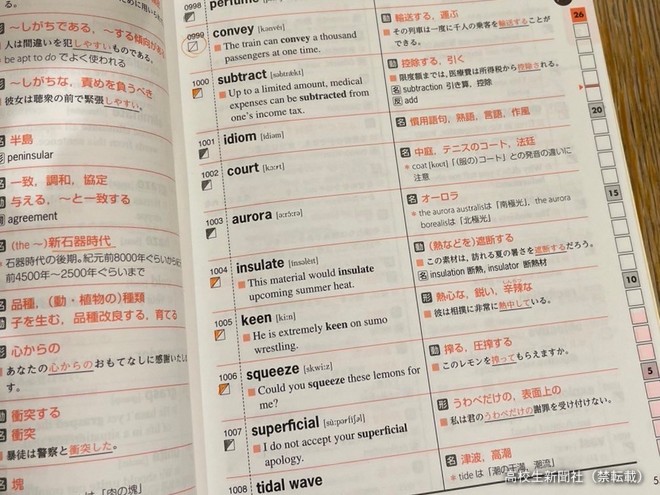 ～しがちである、～する傾向があ
人は間違いを犯しやすいものである。
be apt to do でよく使われる
～しがちな，責めを負うべき
彼女は聴衆の前で緊張しやすい。
名 半島
形 peninsular
名 一致，調和，協定
動 与える，～と一致する
agreement
名 (the ～)新石器時代
石器時代の後期。紀元前8000年ぐらいから
前4500年～2500年ぐらいまで
名 品種，(動・植物の)種類
動 子を生む，品種改良する，育てる
形 心からの
あなたの心からのおもてなしに感謝いたしま
す。
動 衝突する
名 衝突
暴徒は警察と衝突した。
名 塊
は「肉の塊」
0998 perfume
0999 convey [kənvéi]
The train can convey a thousand
passengers at one time.
1000 subtract [səbtrǽkt]
Up to a limited amount, medical
expenses can be subtracted from
one's income tax.
1001 idiom [ídiəm]
1002 court [kɔːrt]
1003 aurora [ɔːrɔ́ːrə]
1004 insulate [ínsəlèit]
This material would insulate
upcoming summer heat.
1005 keen [kiːn]
He is extremely keen on sumo
wrestling.
1006 squeeze [skwiːz]
Could you squeeze these lemons for
me?
1007 superficial [sùːpərfíʃəl]
I do not accept your superficial
apology.
1008 tidal wave
動 輸送する，運ぶ
その列車は一度に千人の乗客を輸送することが
できる。
動 控除する，引く
限度額までは，医療費は所得税から控除される。
名 subtraction 引き算，控除
反 add
名 慣用語句，熟語，言語，作風
名 中庭，テニスのコート，法廷
＊coat [kout]「(服の)コート」との発音の違いに
注意
名 オーロラ
＊the aurora australisは「南極光」，the aurora
borealisは「北極光」
動 (熱などを)遮断する
この素材は，訪れる夏の暑さを遮断するだろう。
名 insulation 断熱，insulator 断熱材
形 熱心な，鋭い，辛辣な
しんらつ
彼は相撲に非常に熱中している。
動 搾る，圧搾する
このレモンを搾ってもらえますか。
形 うわべだけの，表面上の
私は君のうわべだけの謝罪を受け付けない。
名 津波，高潮
＊tide は「潮の干満，潮流」
26
20
15
10
5
5
高校生新聞社（禁転載）